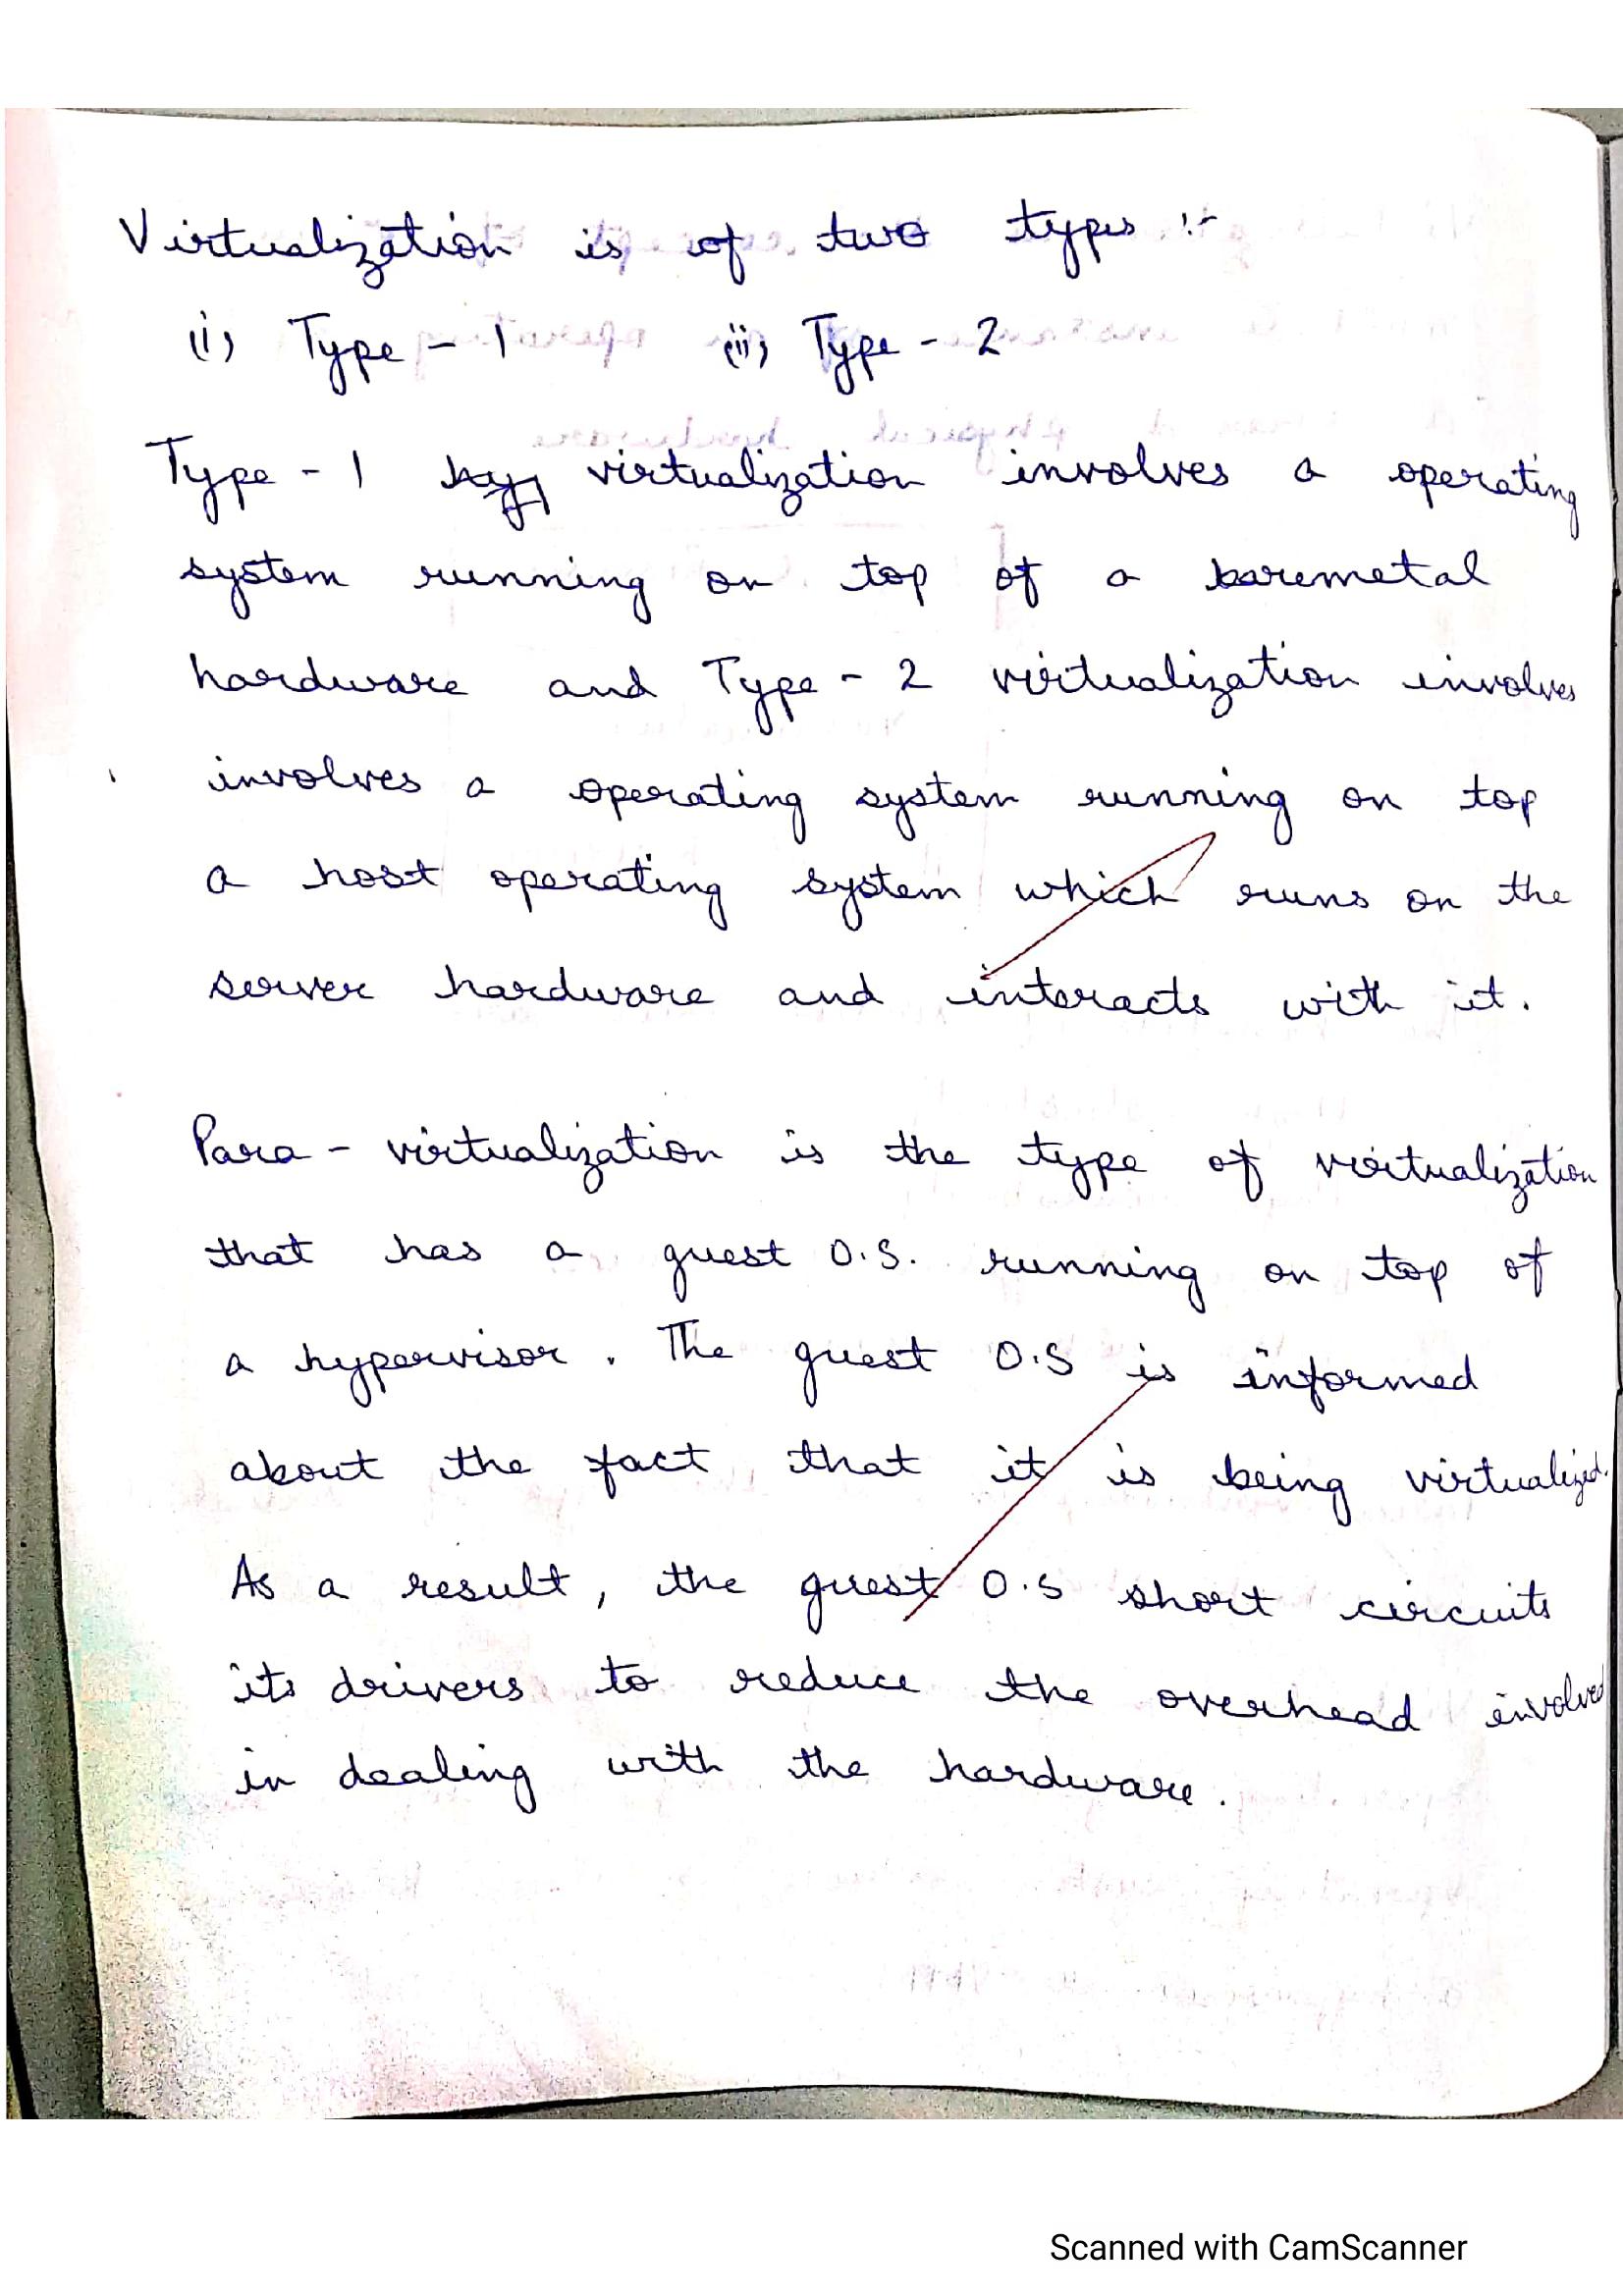 Virtualization is of two types :-
(i) Type - 1 (ii) Type - 2
Type - 1 virtualization involves a operating
system running on top of a baremetal
hardware and Type - 2 virtualization involves
involves a operating system running on top
a host operating system which runs on the
server hardware and interacts with it.
Para - virtualization is the type of virtualization
that has a guest O.S. running on top of
a hypervisor. The guest O.S is informed
about the fact that it is being virtualized.
As a result, the guest O.S short circuits
its drivers to reduce the overhead involved
in dealing with the hardware.
Scanned with CamScanner